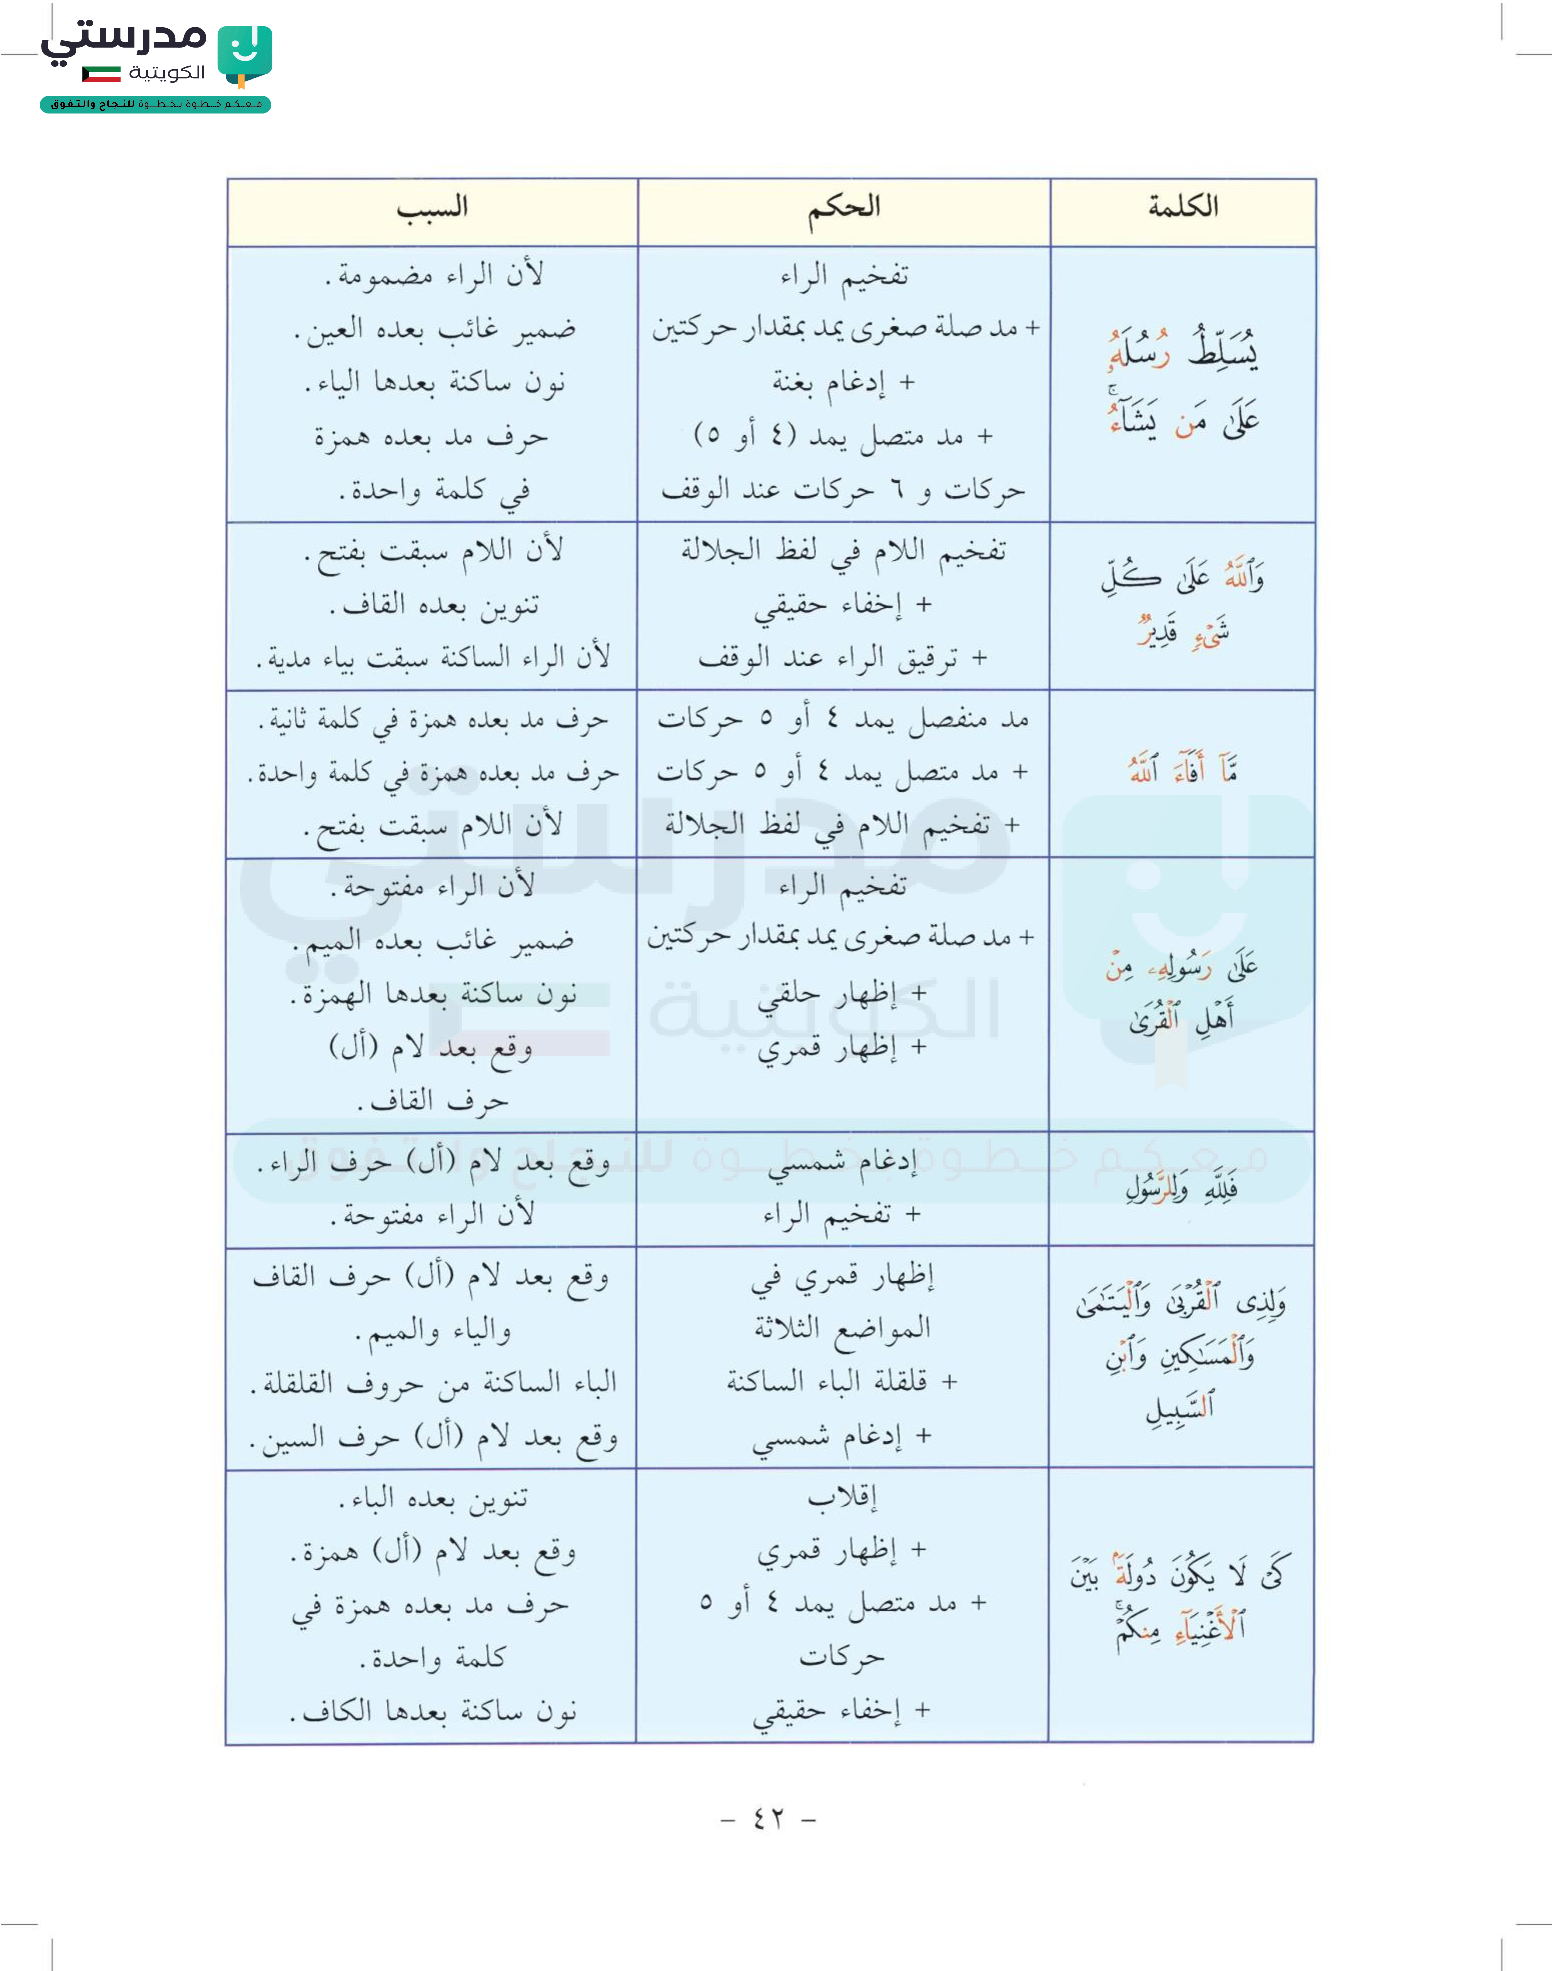 مدرستي
الكويتية
معكم خطوة بخطوة للنجاح والتفوق
الكلمة الحكم السبب
يُسَلِّطُ رُسُلَهُۥ
عَلَىٰ مَن يَشَآءُۚ
تفخيم الراء
+ مد صلة صغرى يمد بمقدار حركتين
+ إدغام بغنة
+ مد متصل يمد (٤ أو ٥)
حركات و ٦ حركات عند الوقف
لأن الراء مضمومة.
ضمير غائب بعده العين.
نون ساكنة بعدها الياء.
حرف مد بعده همزة
في كلمة واحدة.
وَٱللَّهُ عَلَىٰ كُلِّ
شَىْءٍ قَدِيرٌ
تفخيم اللام في لفظ الجلالة
+ إخفاء حقيقي
+ ترقيق الراء عند الوقف
لأن اللام سبقت بفتح.
تنوين بعده القاف.
لأن الراء الساكنة سبقت بياء مدية.
مَّآ أَفَآءَ ٱللَّهُ
مد منفصل يمد ٤ أو ٥ حركات
+ مد متصل يمد ٤ أو ٥ حركات
+ تفخيم اللام في لفظ الجلالة
حرف مد بعده همزة في كلمة ثانية.
حرف مد بعده همزة في كلمة واحدة.
لأن اللام سبقت بفتح.
عَلَىٰ رَسُولِهِۦ مِنْ
أَهْلِ ٱلْقُرَىٰ
تفخيم الراء
+ مد صلة صغرى يمد بمقدار حركتين
+ إظهار حلقي
+ إظهار قمري
لأن الراء مفتوحة.
ضمير غائب بعده الميم.
نون ساكنة بعدها الهمزة.
وقع بعد لام (أل)
حرف القاف.
فَلِلَّهِ وَلِلرَّسُولِ
إدغام شمسي
+ تفخيم الراء
وقع بعد لام (أل) حرف الراء.
لأن الراء مفتوحة.
وَلِذِى ٱلْقُرْبَىٰ وَٱلْيَتَٰمَىٰ
وَٱلْمَسَٰكِينِ وَٱبْنِ
ٱلسَّبِيلِ
إظهار قمري في
المواضع الثلاثة
+ قلقلة الباء الساكنة
+ إدغام شمسي
وقع بعد لام (أل) حرف القاف
والياء والميم.
الباء الساكنة من حروف القلقلة.
وقع بعد لام (أل) حرف السين.
كَىْ لَا يَكُونَ دُولَةًۢ بَيْنَ
ٱلْأَغْنِيَآءِ مِنكُمْۚ
إقلاب
+ إظهار قمري
+ مد متصل يمد ٤ أو ٥
حركات
+ إخفاء حقيقي
تنوين بعده الباء.
وقع بعد لام (أل) همزة.
حرف مد بعده همزة في
كلمة واحدة.
نون ساكنة بعدها الكاف.
- ٤٢ -